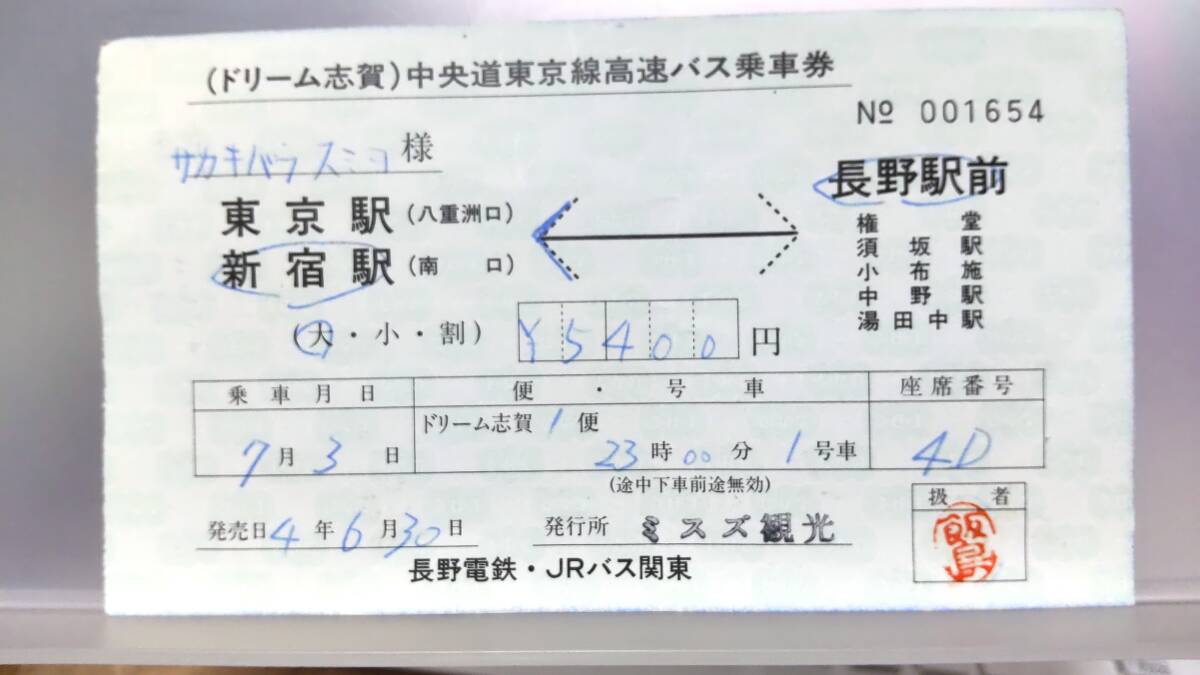 (ドリーム志賀)中央道東京線高速バス乗車券
№ 001654
サカキバラ スミコ 様
東京駅(八重洲口)
新宿駅(南口)
長野駅前
権堂
須坂駅
小布施
中野駅
湯田中駅
(大・小・割) ¥5400円
乗車月日 便・号車 座席番号
7月3日 ドリーム志賀1便 23時00分 1号車 4D
(途中下車前途無効)
扱者
飯島
発売日4年6月30日 発行所 ミスズ観光
長野電鉄・JRバス関東